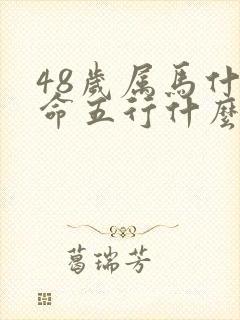 48歲属馬什
命五行什麼
葛瑞芳